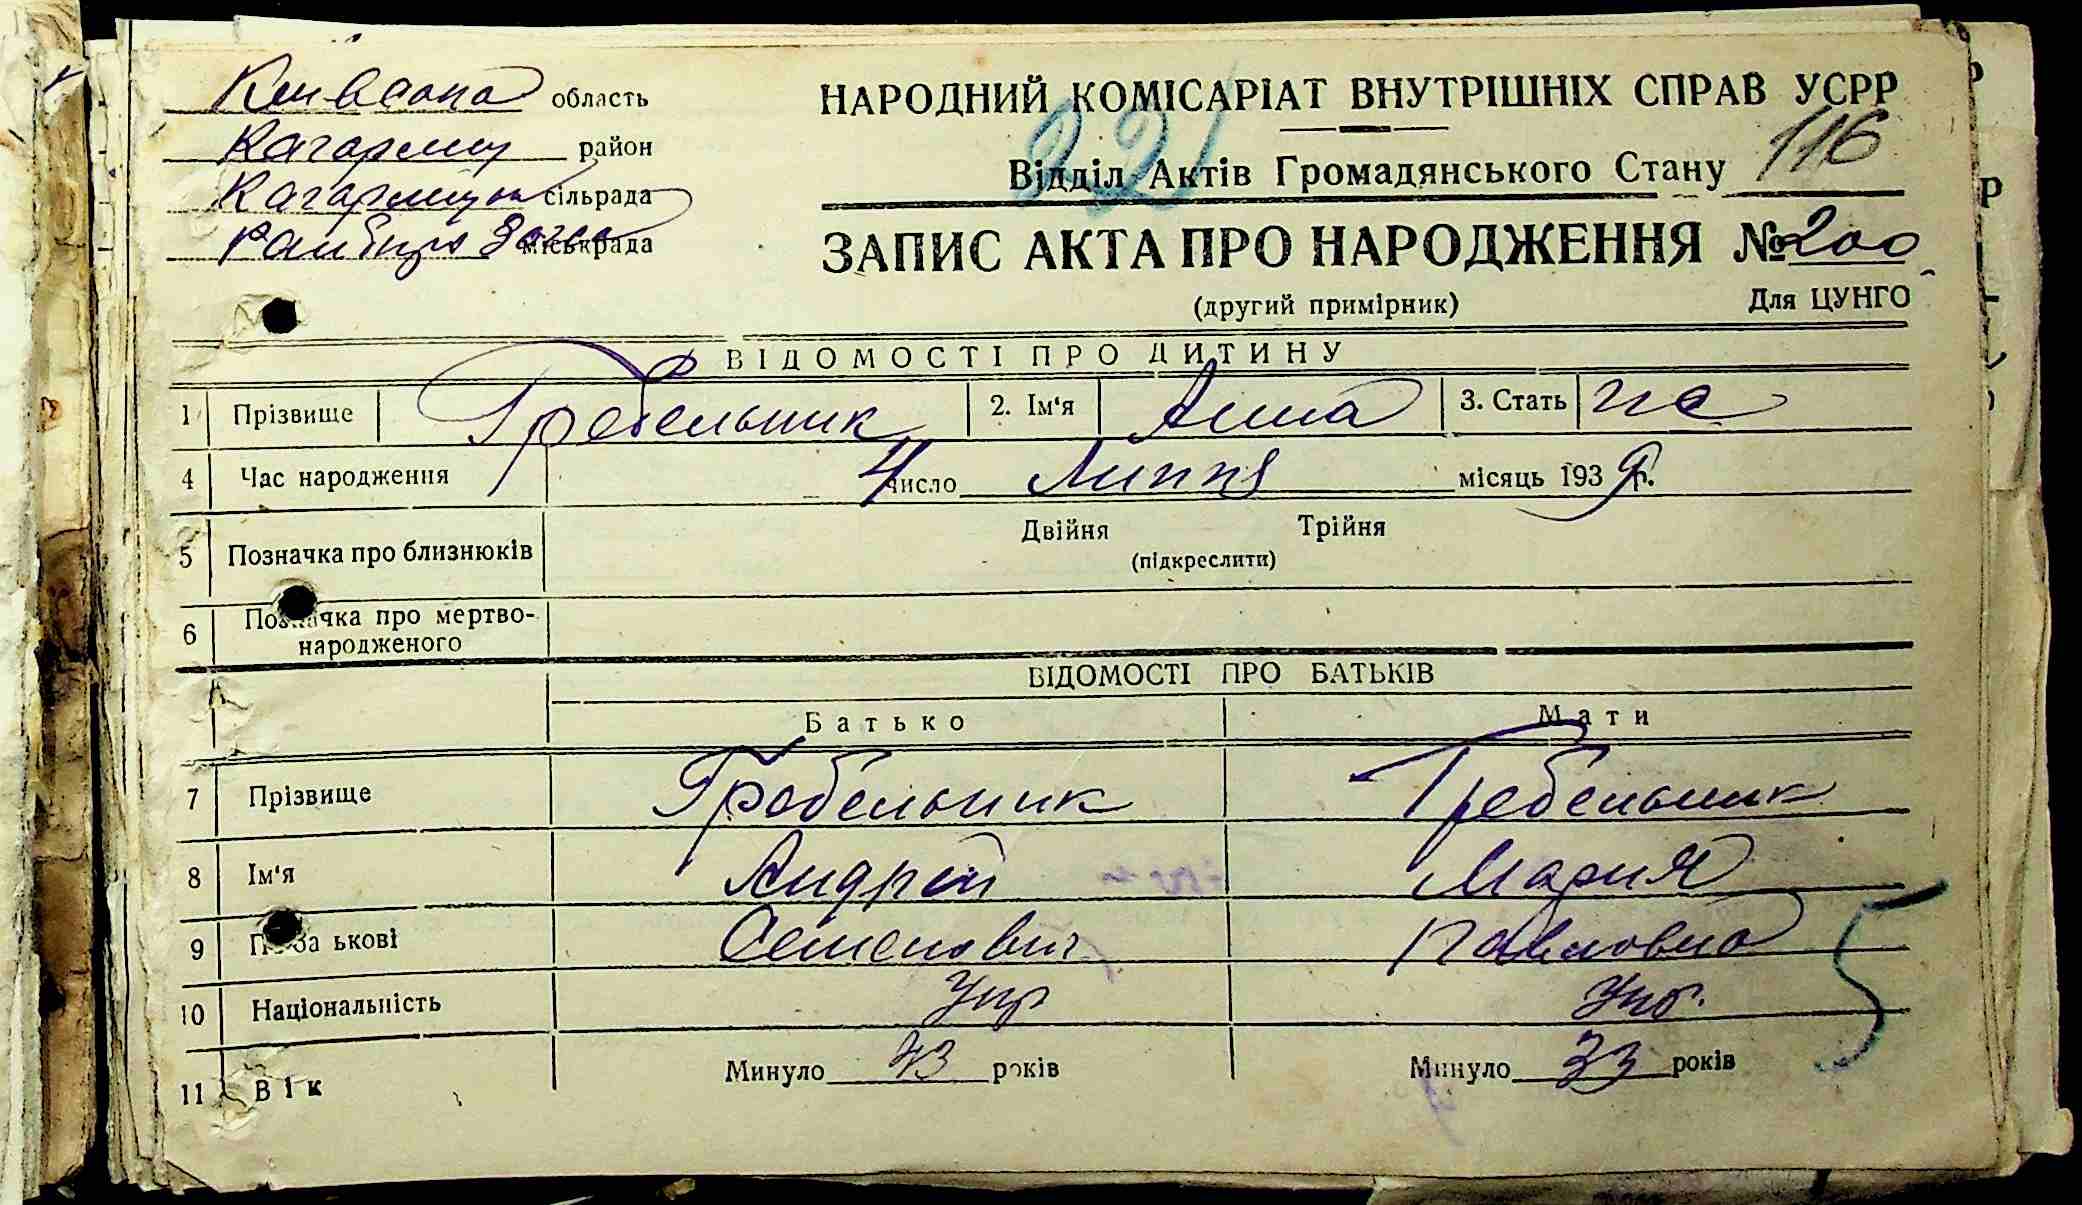 Київська область
Кагарлиц район
Кагарлицька сільрада
Райбюро Загсу міськрада
НАРОДНИЙ КОМІСАРІАТ ВНУТРІШНІХ СПРАВ УСРР
221
Відділ Актів Громадянського Стану 116
ЗАПИС АКТА ПРО НАРОДЖЕННЯ № 200
(другий примірник) Для ЦУНГО
ВІДОМОСТІ ПРО ДИТИНУ
1 Прізвище Гребельник 2. Ім'я Анна 3. Стать жс
4 Час народження 4 число Липня місяць 1939 р.
5 Позначка про близнюків Двійня Трійня
(підкреслити)
6 Позначка про мертво-
народженого
ВІДОМОСТІ ПРО БАТЬКІВ
Батько Мати
7 Прізвище Гребельник Гребельник
8 Ім'я Андрій Мария
9 По ба ькові Семенович Павловна
10 Національність Укр Укр.
11 Вік Минуло 43 років Минуло 33 років
5